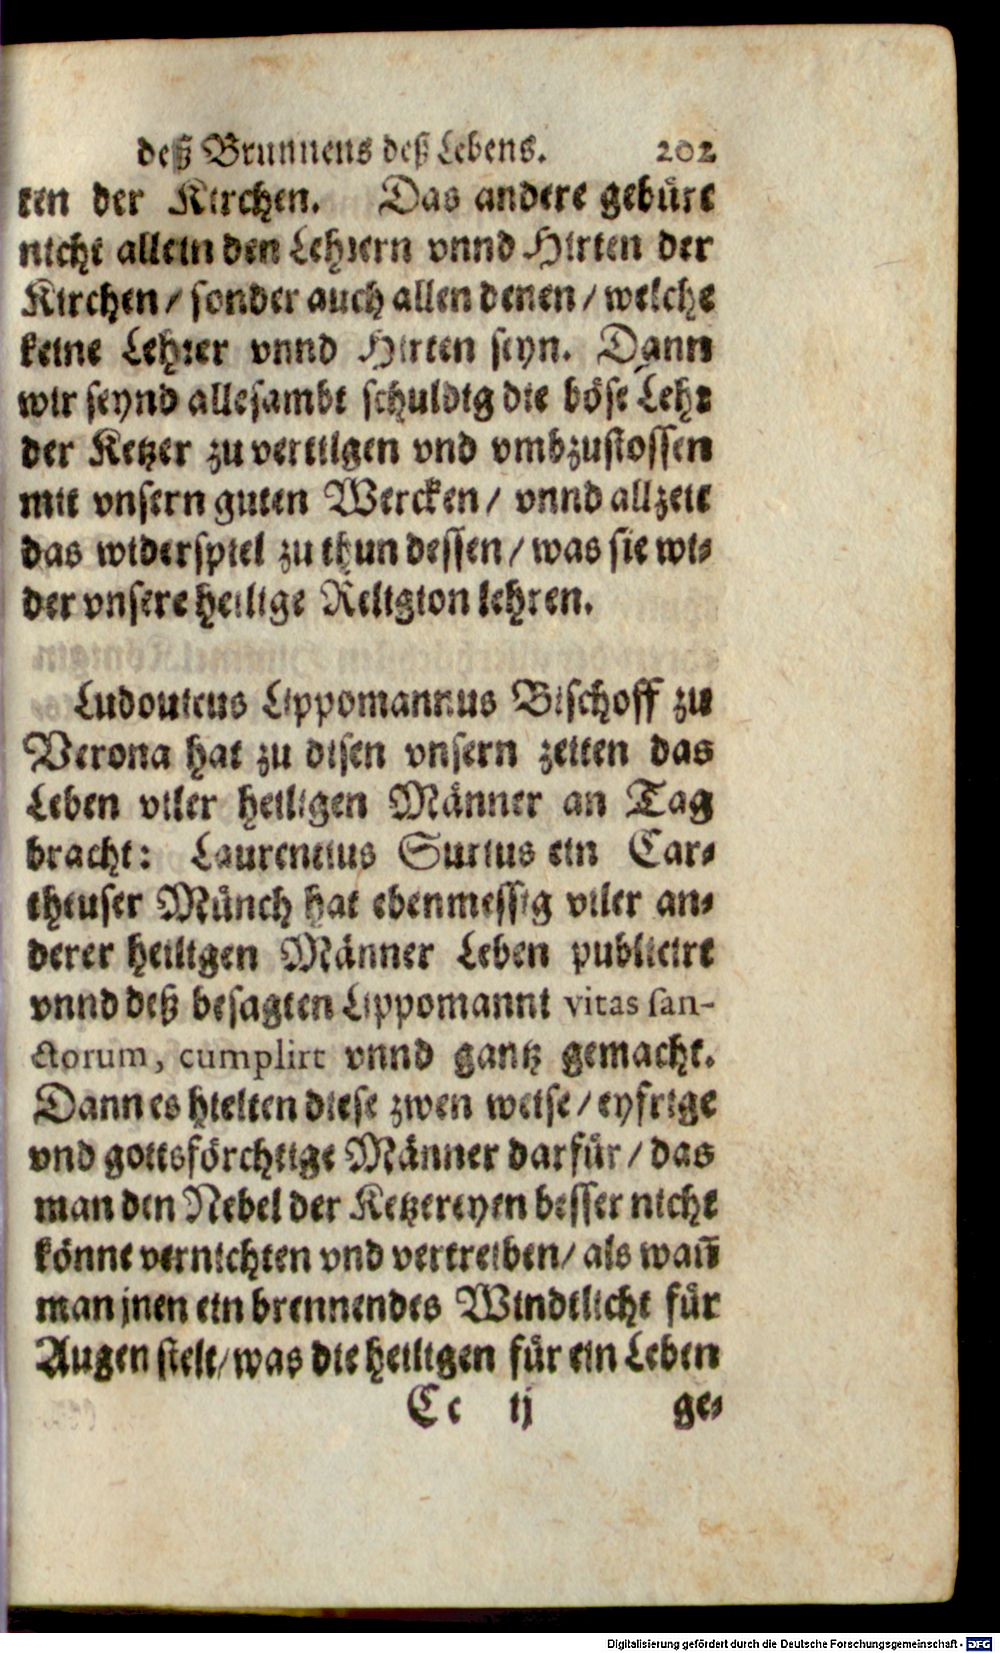 deß Brunnens deß Lebens. 202
ten der Kirchen. Das andere gebürt
nicht allein den Lehrern vnnd Hirten der
Kirchen / sonder auch allen denen / welche
keine Lehrer vnnd Hirten seyn. Dann
wir seynd allesambt schuldig die böse Lehr
der Ketzer zu vertilgen vnd vmbzustossen
mit vnsern guten Wercken / vnnd allzeit
das widerspiel zu thun dessen / was sie wi-
der vnsere heilige Religion lehren.
Ludouicus Lippomannus Bischoff zu
Verona hat zu disen vnsern zeiten das
Leben viler heiligen Männer an Tag
bracht: Laurentius Surius ein Car-
theuser Münch hat ebenmessig viler an-
derer heiligen Männer Leben publicirt
vnnd deß besagten Lippomanni vitas san-
ctorum, cumplirt vnnd gantz gemacht.
Dann es hielten diese zwen weise / eyfrige
vnd gottsförchtige Männer darfür / das
man den Nebel der Ketzereyen besser nicht
könne vernichten vnd vertreiben / als wañ
man jnen ein brennendes Windtlicht für
Augen stelt / was die heiligen für ein Leben
Cc ij ge-
Digitalisierung gefördert durch die Deutsche Forschungsgemeinschaft - DFG